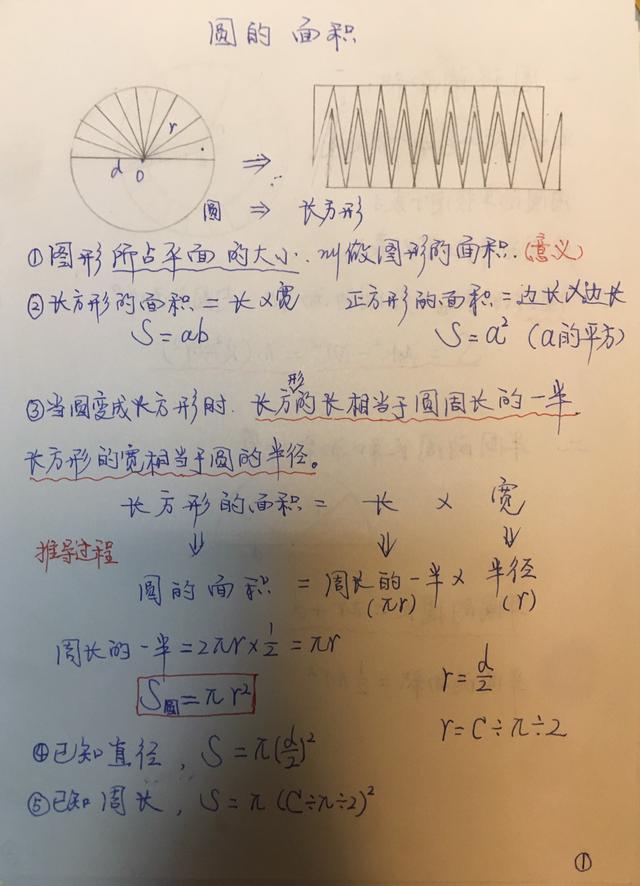 圆的面积
r
d O ⇒
圆 ⇒ 长方形
①图形所占平面的大小.叫做图形的面积.(意义)
②长方形的面积=长×宽 正方形的面积=边长×边长
S=ab S=a² (a的平方)
③当圆变成长方形时.长方形的长相当于圆周长的一半.
长方形的宽相当于圆的半径。
长方形的面积= 长 × 宽
推导过程 ⇓ ⇓ ⇓
圆的面积 =周长的一半× 半径
(πr) (r)
周长的一半=2πr×1/2=πr
r=d/2
S圆=πr²
r=C÷π÷2
④已知直径,S=π(d/2)²
⑤已知周长,S=π(C÷π÷2)²
①